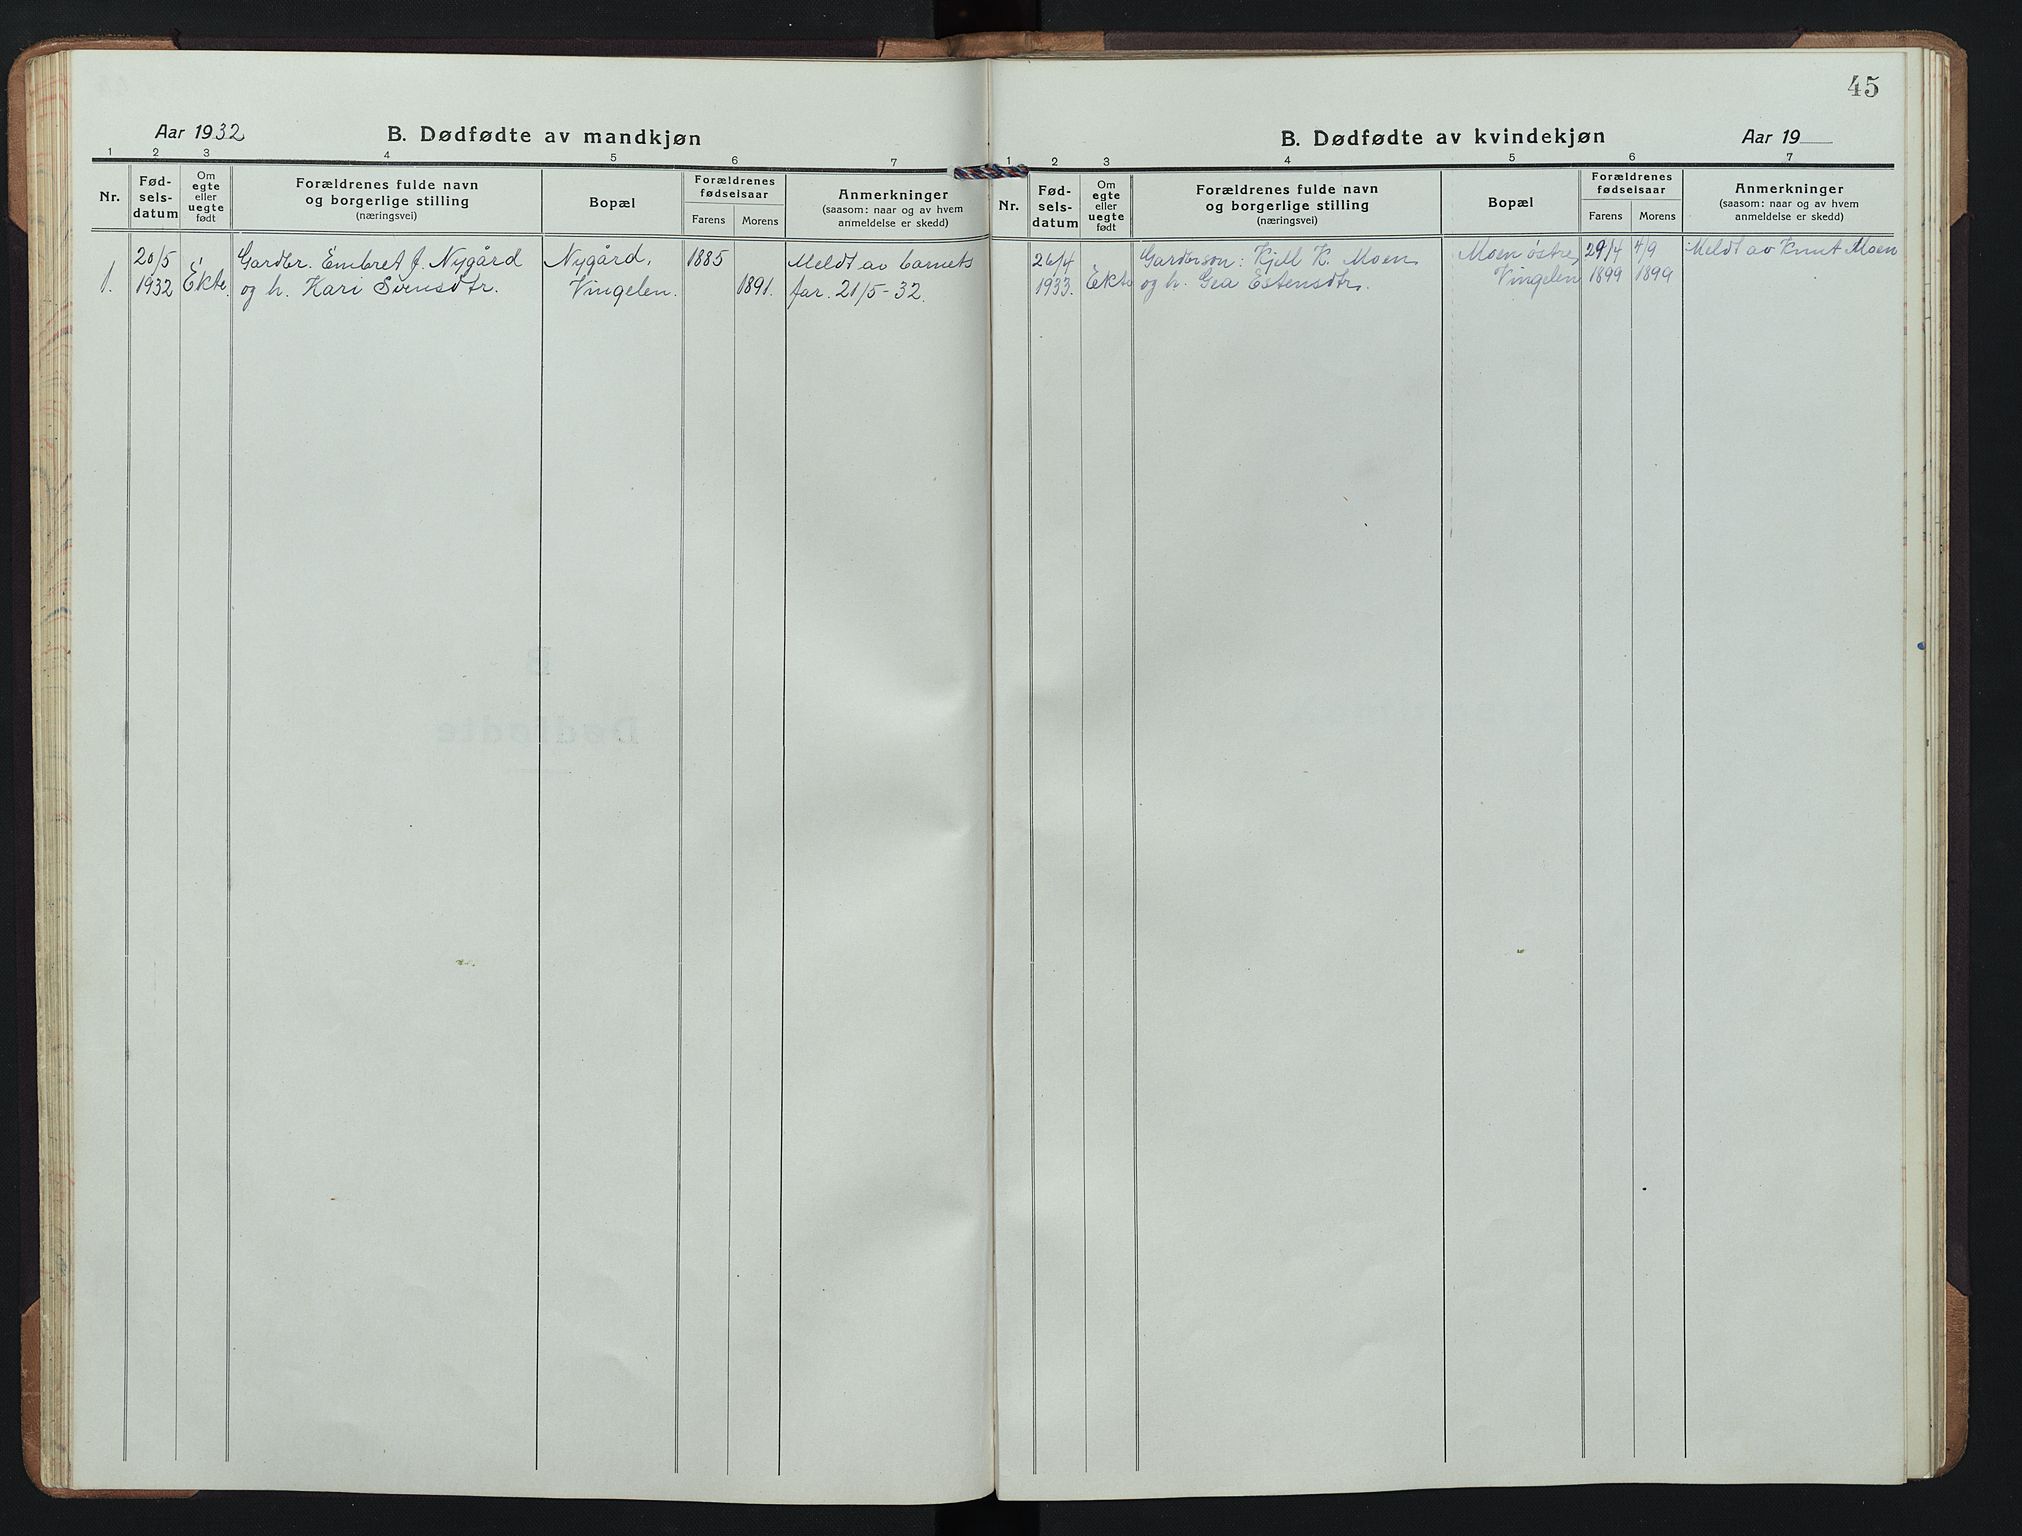 Aar 1932
B. Dødfødte av mandkjøn
1 2 3 4 5 6 7
Nr.
Fød-
sels-
datum
Om
egte
eller
uegte
født
Forældrenes fulde navn
og borgerlige stilling
(næringsvei)
Bopæl
Forældrenes
fødselsaar
Farens Morens
Anmerkninger
(saasom: naar og av hvem
anmeldelse er skedd)
20/5 Gardbr. Embret J. Nygård Nygård, 1885 Meldt av barnets
1. 1932 Ekte og h. Kari Svensdtr. Vingelen. 1891. far. 21/5-32.
45
B. Dødfødte av kvindekjøn
Aar 19
1 2 3 4 5 6 7
Nr.
Fød-
sels-
datum
Om
egte
eller
uegte
født
Forældrenes fulde navn
og borgerlige stilling
(næringsvei)
Bopæl
Forældrenes
fødselsaar
Farens Morens
Anmerkninger
(saasom: naar og av hvem
anmeldelse er skedd)
26/4 Kjell K. Moen Moen østre, 29/4 4/9 Meldt av Knut Moen
1933. Ekte og h. Gea Estensdtr. Vingelen 1899 1899
B
Dødfødte